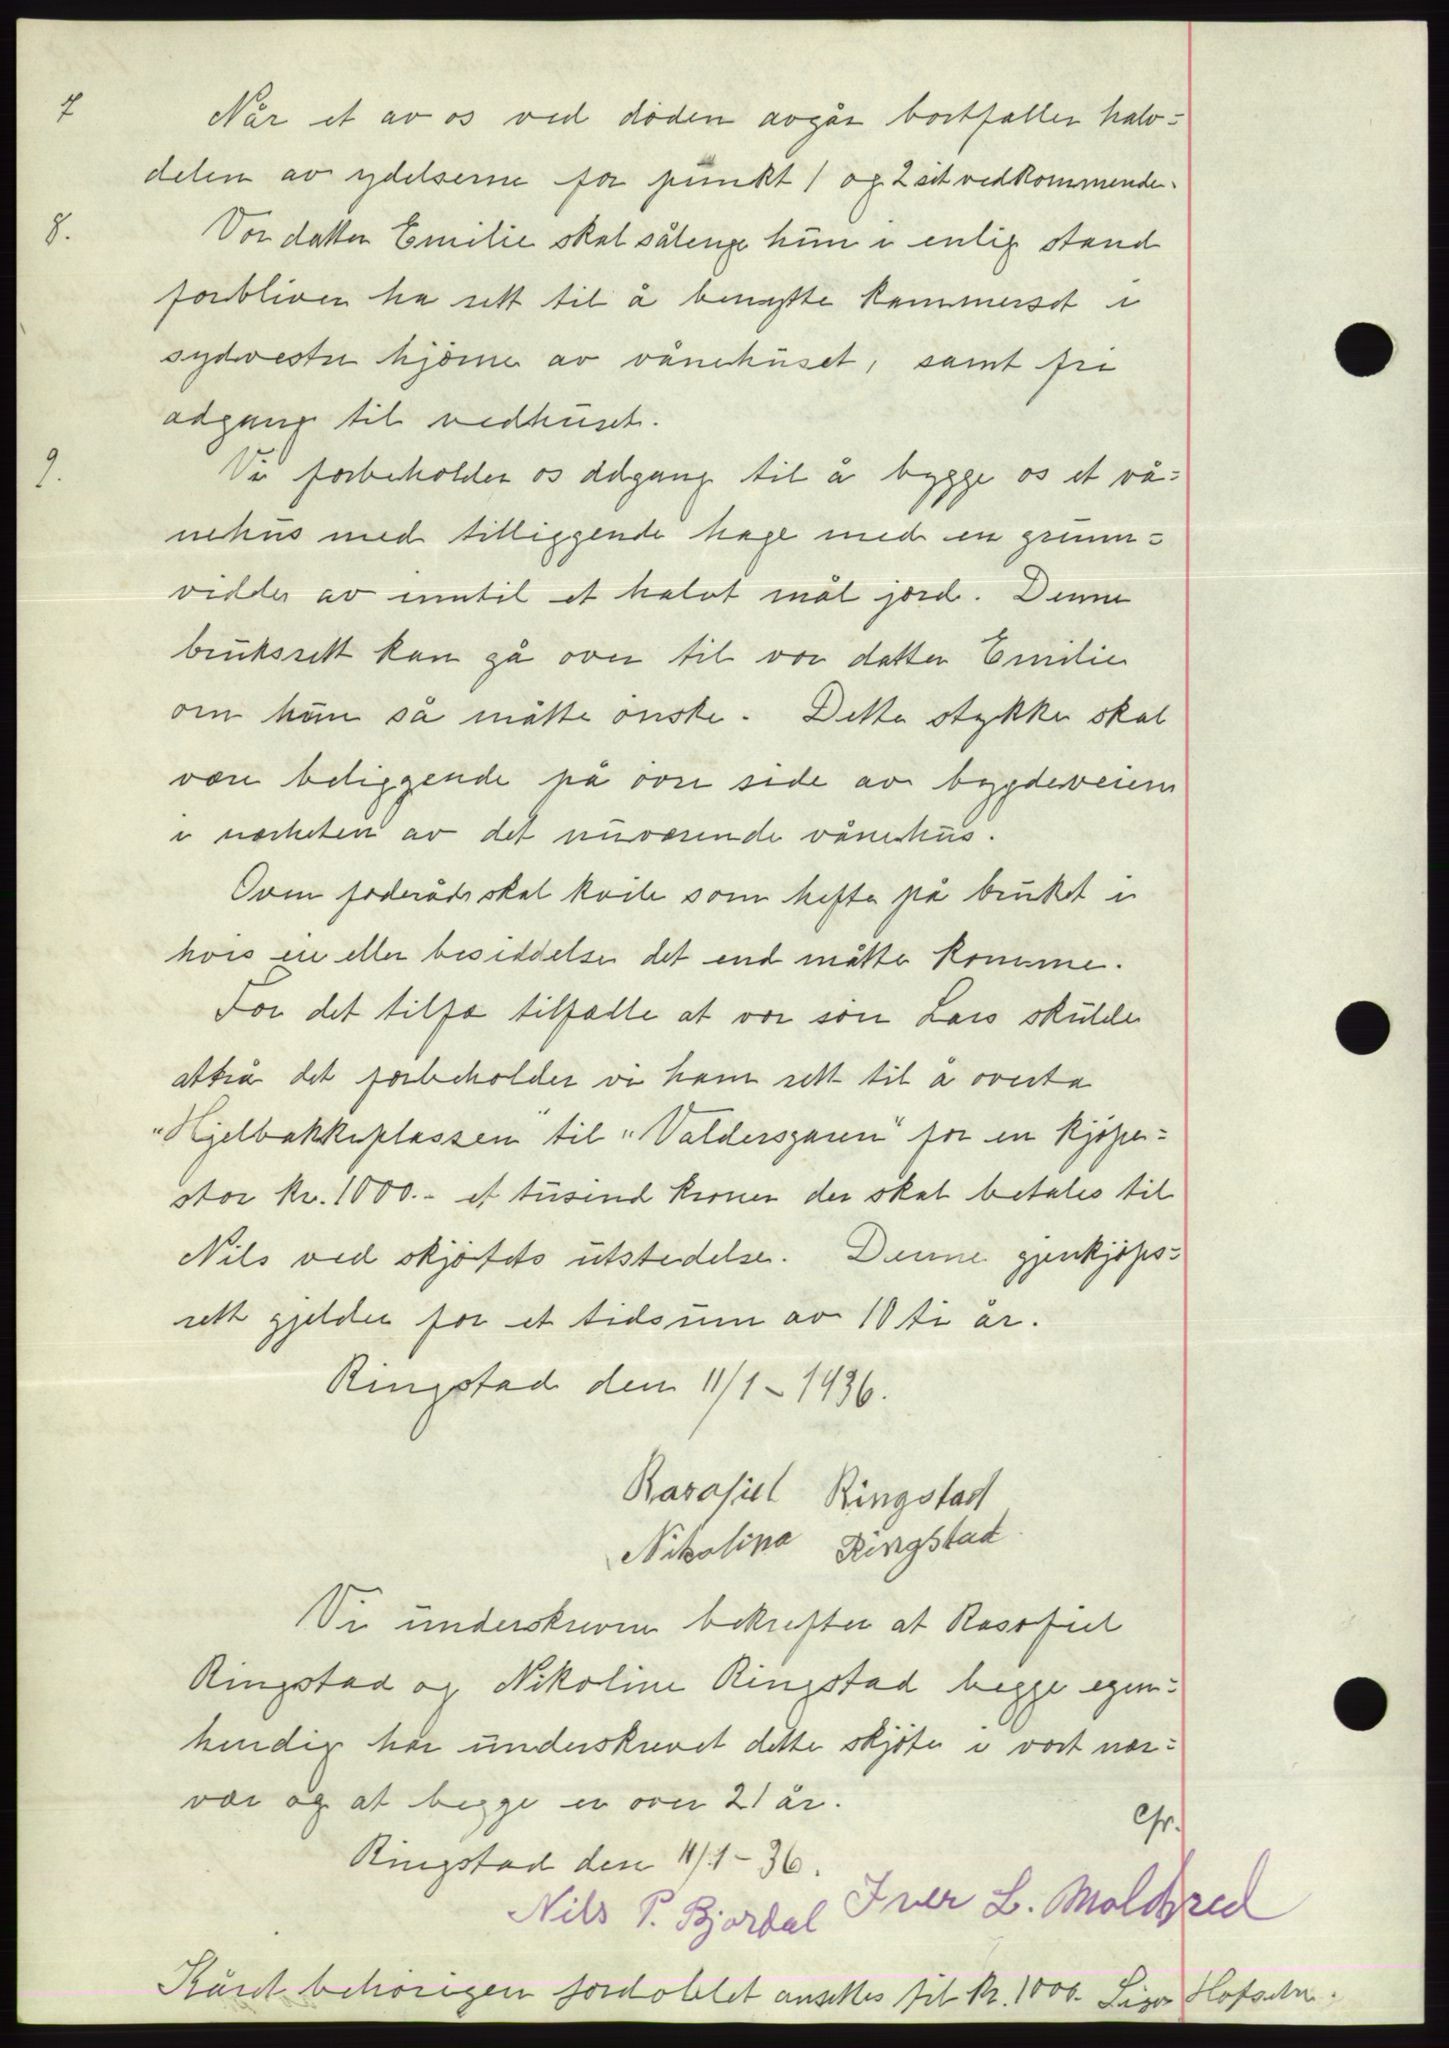 7 Når et av os ved döden avgår bortfaller halv=
delen av ydelserne for punkt 1 og 2 sit vedkommende.
8. Vor datter Emilie skal sålenge hun i enlig stand
forbliver ha rett til å benytte kammerset i
sydvestre hjörne av vånehuset, samt fri
adgang til vedhuset.
9. Vi forbeholder os adgang til å bygge os et vå=
nehus med tilliggende hage med en grunn=
vidde av inntil et halvt mål jord. Denne
bruksrett kan gå over til vor datter Emilie
om hun så måtte önske. Dette stykke skal
være beliggende på övre side av bygdeveien
i nærheten av det nuværende vånehus.
Oven foderåd skal kvile som hefte på bruket i
hvis eie eller besiddelse det end måtte komme.
For det tilfæ tilfælle at vor sön Lars skulde
attrå det forbeholder vi ham rett til å overta
"Hjelbakkeplassen" til "Valdersgaren" for en kjöpe=
stor kr. 1000.- et tusind kroner der skal betales til
Nils ved skjötets utstedelse. Denne gjenkjöps=
rett gjelder for et tidsrum av 10 ti år.
Ringstad den 11/1 - 1936.
Rasofiel Ringstad
Nikolina Ringstad
Vi underskrevne bekrefter at Rasofiel
Ringstad og Nikoline Ringstad begge egen=
hendig har underskrevet dette skjöte i vort nær=
vær og at begge er over 21 år.
Ringstad den 11/1 - 36.
Nils P. Bjørdal Iver L. Moldskred
Kåret behörigen fordoblet ansettes til kr. 1000.